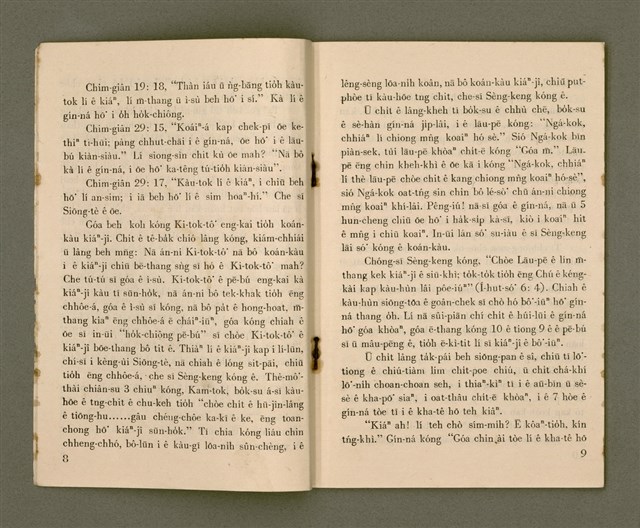 Chim-giân 19: 18, “Thàn iáu ū ǹg-bāng tio̍h kàu-
tok lí ê kiáⁿ, lí m̄-thang ū ì-sù beh hō͘ i sí.” Kà lí ê
gín-ná hō͘ i o̍h ho̍k-chiông.
Chim-giân 29: 15, “Koáiⁿ-á kap chek-pī ōe ke-
thiⁿ tì-hūi; pàng chhut-chāi i ê gín-ná, ōe hō͘ i ê lāu-
bú kiàn-siàu.” Lí siong-sìn chit kù ōe mah? “Nā bô
kà lí ê gín-ná, i ōe hō͘ ka-têng tú-tio̍h kiàn-siàu”.
Chim-giân 29: 17, “Kàu-tok lí ê kiáⁿ, i chiū beh
hō͘ lí an-sim; i iā beh hō͘ lí ê sim hoaⁿ-hí.” Che sī
Siōng-tè ê ōe.
Góa beh koh kóng Ki-tok-tô͘ eng-kai tio̍h koán-
kàu kiáⁿ-jî. Chit ê tê-ba̍k chiò lâng kóng, kiám-chhái
ū lâng beh mn̄g: Nā án-ni Ki-tok-tô͘ nā bô koán-kàu
i ê kiáⁿ-jî chiū bē-thang sǹg sī hó ê Ki-tok-tô͘ mah?
Che tú-tú sī góa ê ì-sù. Ki-tok-tô͘ ê pē-bú eng-kai kà
kiáⁿ-jî kàu tī sūn-ho̍k, nā án-ni bô tek-khak tio̍h ēng
chhôe-á, góa ê ì-sù sī kóng, nā bô pa̍t ê hong-hoat, m̄-
thang kiaⁿ ēng chhôe-á ê cháiⁿ-iūⁿ, góa kóng chiah ê
ōe sī in-ūi “ho̍k-chiông pē-bú” sī chòe Ki-tok-tô͘ ê
kiáⁿ-jî bōe-thang bô tit ê. Thiàⁿ lí ê kiáⁿ-jî kap i lī-lūn,
chí-sī i kèng-ùi Siōng-tè, nā chiah ê lóng sit-pāi, chiū
tio̍h ēng chhôe-á, che sī Sèng-keng kóng ê. Thê-mô͘-
thài chiân-su 3 chiuⁿ kóng, Kam-tok, bo̍k-su á-sī kàu-
hōe ê tng-chit ê chu-keh tio̍h “chòe chi̍t ê hū-jîn-lâng
ê tiōng-hu......gâu chéng-chôe ka-kī ê ke, ēng toan-
chong hō͘ kiáⁿ-jî sūn-ho̍k.” Tī chia kóng liáu chin
chheng-chhó, bô-lūn i ê kàu-gī lōa-nih sûn-chêng, i ê
8
lêng-sèng lōa-nih koân, nā bô koán-kàu kiáⁿ-jî, chiū put-
phòe tī kàu-hōe tng chit, che-sī Sèng-keng kóng ê.
Ū chi̍t ê lâng-kheh tī bo̍k-su ê chhù chē, bo̍k-su
ê sè-hàn gín-ná ji̍p-lâi, i ê lāu-pē kóng: “Ngá-kok,
chhiáⁿ lí chiong mn̂g koaiⁿ hó sè.” Sió Ngá-kok bīn
piàn-sek, tùi lāu-pē khòaⁿ chi̍t-ē kóng “Góa m̄.” Lāu-
pē ēng chin kheh-khì ê ōe kā i kóng “Ngá-kok, chhiáⁿ
lí thè lāu-pē chòe chi̍t ê kang chiong mn̂g koaiⁿ hó-sè”,
sió Ngá-kok oat-tńg sin chin bô lé-sò͘ chū án-ni chiong
mn̂g koaiⁿ khí-lâi. Pêng-iú! nā-sī góa ê gín-ná, nā ū 5
hun-cheng chiū ōe hō͘ i ha̍k-si̍p kà-sī, kiò i koaiⁿ hit
ê mn̂g i chiū koaiⁿ. In-ūi lán só͘ su-iàu ê sī Sèng-keng
lāi só͘ kóng ê koán-kàu.
Chóng-sī Sèng-keng kóng, “Chòe Lāu-pē ê lín m̄-
thang kek kiáⁿ-jî ê siū-khì; to̍k-to̍k tio̍h ēng Chú ê kéng-
kài kap kàu-hùn lâi pôe-iúⁿ” (Í-hut-só͘ 6: 4). Chiah ê
kàu-hùn siōng-tōa ê goân-chek sī chò hó bô͘-iūⁿ hō͘ gín-
ná thang o̍h. Lí nā sūi-piān chí chi̍t ê hūi-lūi ê gín-ná
hō͘ góa khòaⁿ, góa ē-thang kóng 10 ê tiong 9 ê ê pē-bú
sī ū mâu-pēng ê, tio̍h ē-kì-tit lí sī kiáⁿ-jî ê bô͘-iūⁿ.
Ū chi̍t lâng ta̍k-pái beh siōng-pan ê sî, chiū tī lō͘-
tiong ê chiú-tiàm lim chi̍t-poe chiú, ū chi̍t chá-khí
lo̍͘-nih choan-choan seh, i thiaⁿ-kìⁿ tī i ê aū-bīn ū sè-
sè ê kha-pō͘ siaⁿ, i oat-thâu chi̍t-ē khòaⁿ, i ê 7 hòe ê
gín-ná tòe tī i ê kha-tê hō teh kiâⁿ.
“Kiáⁿ ah! lí teh chò sím-mih? Ē kôaⁿ-tio̍h, kín
tńg-khì.” Gín-ná kóng “Góa chin ài tòe lí ê kha-tê hō
9